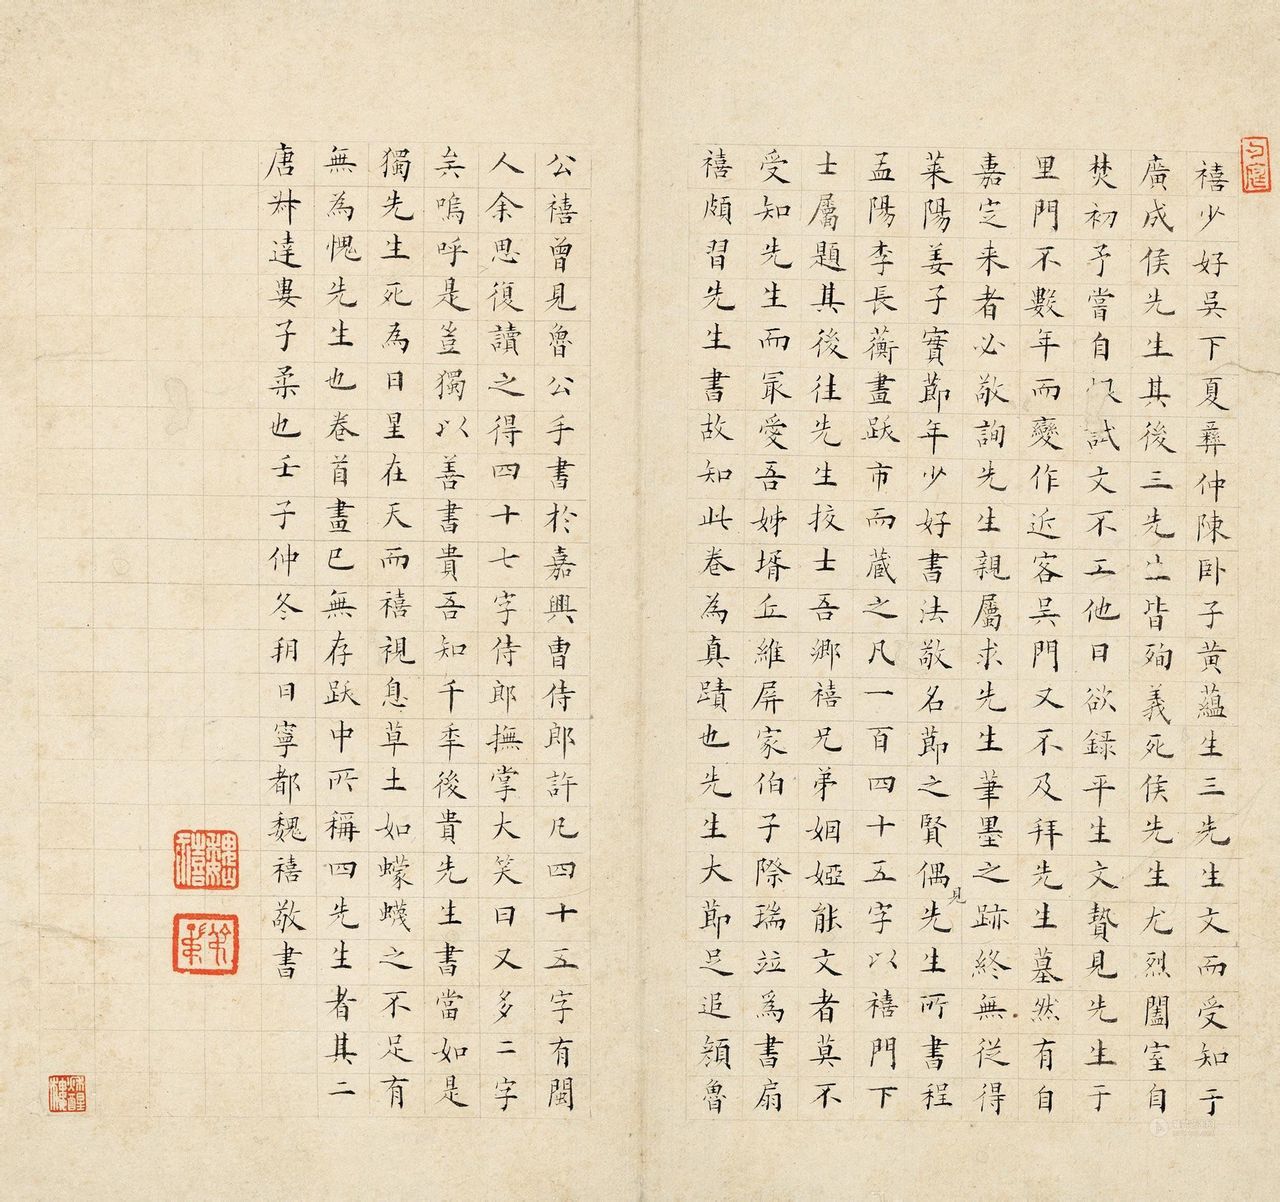 禧少好吳下夏彝仲陳卧子黃蘊生三先生文而受知于
廣成侯先生其後三先生皆殉義死侯先生尤烈闔室自
焚初予嘗自恨試文不工他日欲錄平生文贄見先生于
里門不數年而變作近客吳門又不及拜先生墓然有自
嘉定来者必敬詢先生親屬求先生筆墨之跡終無從得
萊陽姜子實節年少好書法敬名節之賢偶見先生所書程
孟陽李長蘅畫跋市而藏之凡一百四十五字以禧門下
士屬題其後往先生挍士吾鄉禧兄弟姻婭能文者莫不
受知先生而冣愛吾姊壻丘維屏家伯子際瑞竝爲書扇
禧頗習先生書故知此卷為真蹟也先生大節足追顏魯
公禧曾見魯公手書於嘉興曹侍郎許凡四十五字有閩
人余思復讀之得四十七字侍郎撫掌大笑曰又多二字
矣嗚呼是豈獨以善書貴吾知千秊後貴先生書當如是
獨先生死為日星在天而禧視息草土如蠓蠛之不足有
無為愧先生也卷首畫已無存跋中所稱四先生者其二
唐叔達婁子柔也壬子仲冬朔日寧都魏禧敬書
魏禧